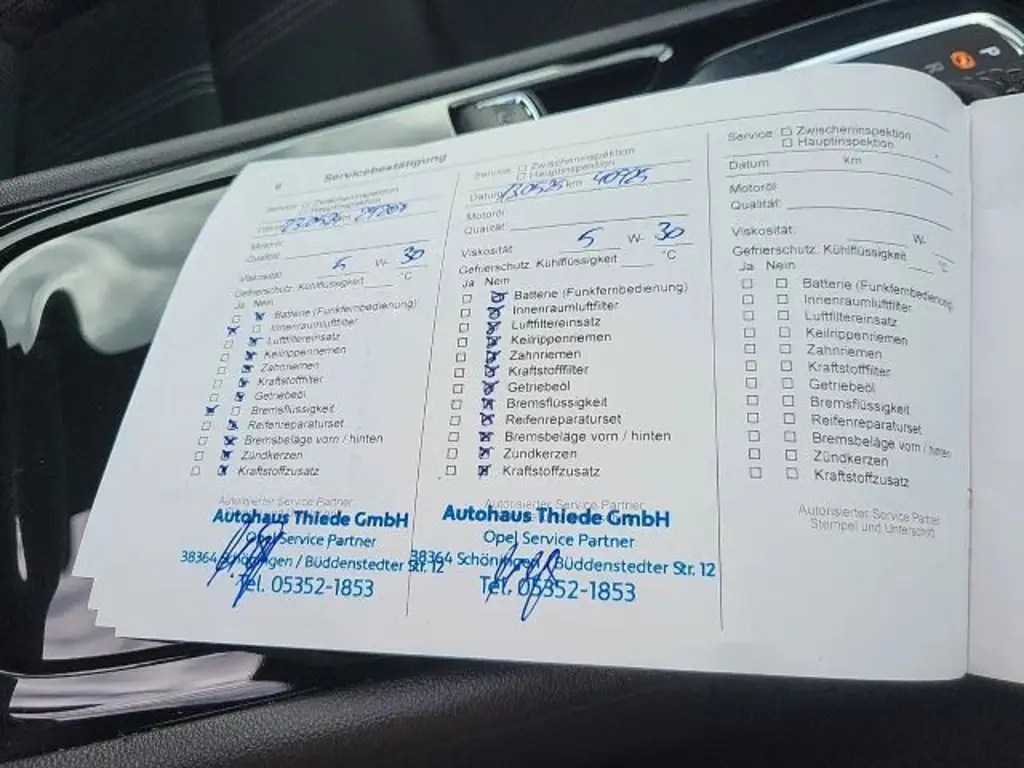 6
Servicebestätigung
Service: Zwischeninspektion
Hauptinspektion
Datum km
Motoröl
Qualität:
Viskosität: 5 W- 30
Gefrierschutz. Kühlflüssigkeit °C
Ja Nein
Batterie (Funkfernbedienung)
Innenraumluftfilter
Luftfiltereinsatz
Keilrippenriemen
Zahnriemen
Kraftstofffilter
Getriebeöl
Bremsflüssigkeit
Reifenreparaturset
Bremsbeläge vorn / hinten
Zündkerzen
Kraftstoffzusatz
Autorisierter Service Partner
Autohaus Thiede GmbH
Opel Service Partner
38364 Schöningen / Büddenstedter Str. 12
Tel. 05352-1853
Service: Zwischeninspektion
Hauptinspektion
Datum 13.05.25 km 40925
Motoröl
Qualität:
Viskosität: 5 W- 30
Gefrierschutz. Kühlflüssigkeit °C
Ja Nein
Batterie (Funkfernbedienung)
Innenraumluftfilter
Luftfiltereinsatz
Keilrippenriemen
Zahnriemen
Kraftstofffilter
Getriebeöl
Bremsflüssigkeit
Reifenreparaturset
Bremsbeläge vorn / hinten
Zündkerzen
Kraftstoffzusatz
Autorisierter Service Partner
Autohaus Thiede GmbH
Opel Service Partner
38364 Schöningen / Büddenstedter Str. 12
Tel. 05352-1853
Service: Zwischeninspektion
Hauptinspektion
Datum km
Motoröl
Qualität:
Viskosität: W-
Gefrierschutz. Kühlflüssigkeit °C
Ja Nein
Batterie (Funkfernbedienung)
Innenraumluftfilter
Luftfiltereinsatz
Keilrippenriemen
Zahnriemen
Kraftstofffilter
Getriebeöl
Bremsflüssigkeit
Reifenreparaturset
Bremsbeläge vorn / hinten
Zündkerzen
Kraftstoffzusatz
Autorisierter Service Partner
Stempel und Unterschrift
P
R